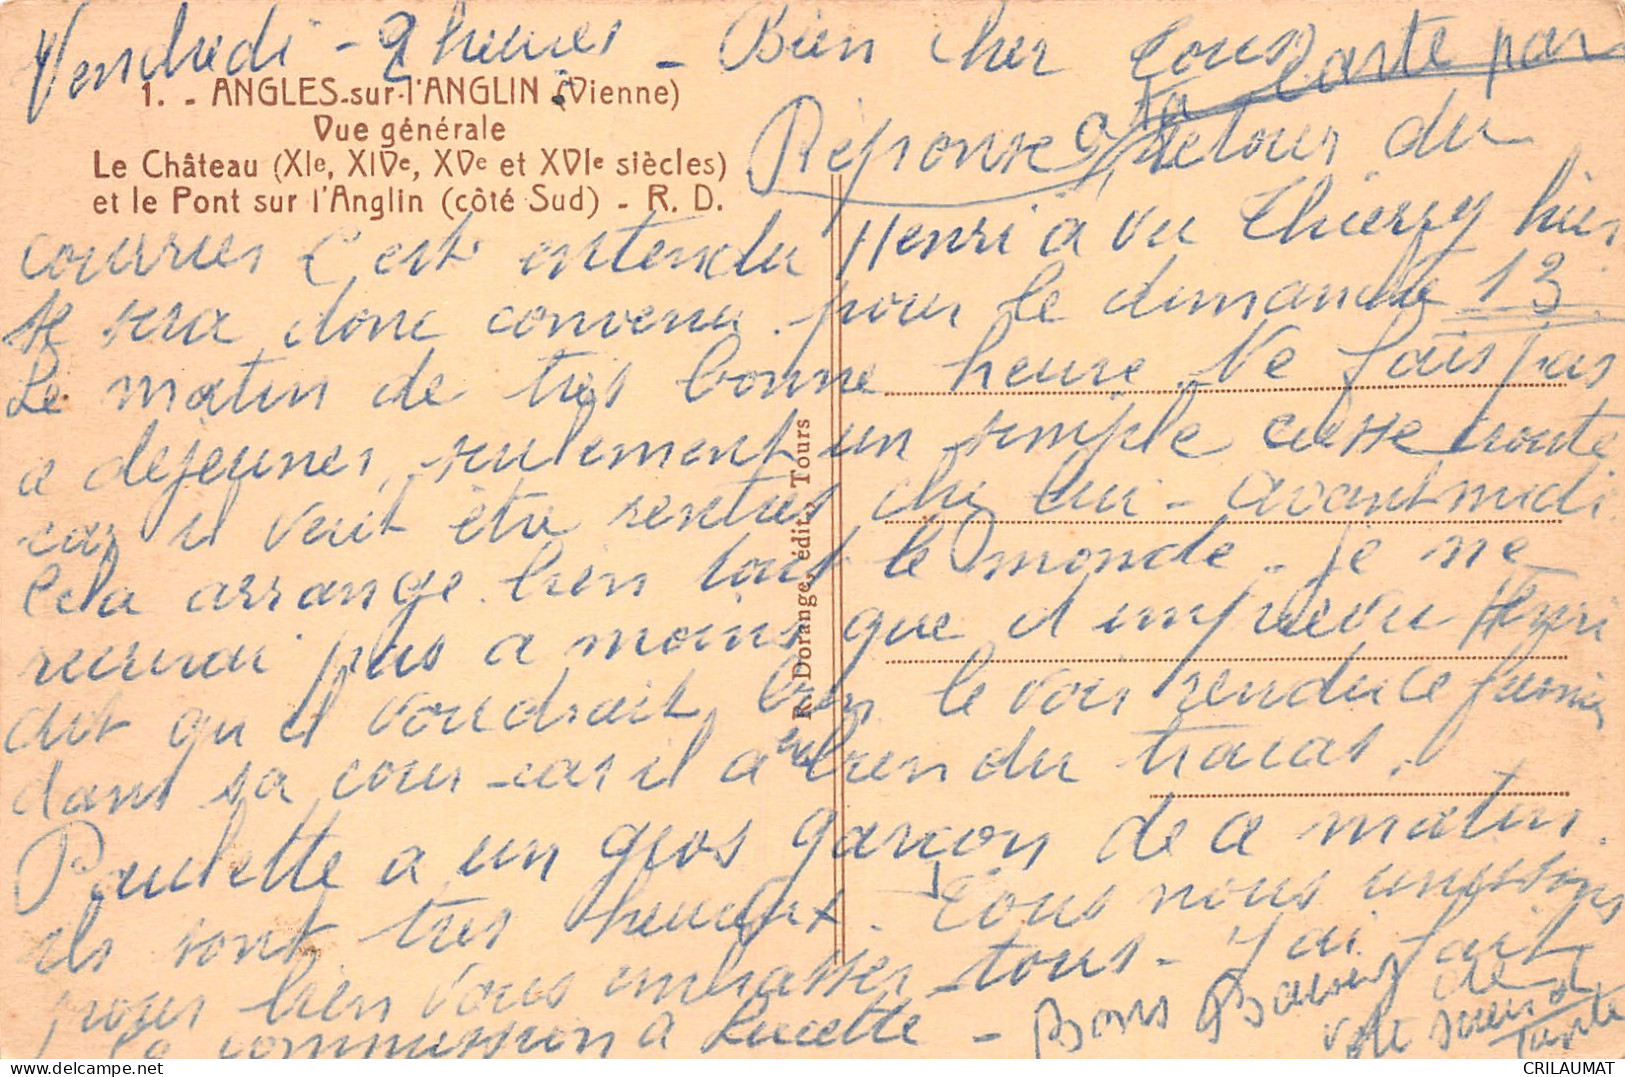 Vendredi - 2 heures - Bien cher Tous
ta carte par
1. - ANGLES-sur-l'ANGLIN (Vienne)
Vue générale
Le Château (XIe, XIVe, XVe et XVIe siècles)
et le Pont sur l'Anglin (côté Sud) - R. D.
Réponse a retour du
courrier C'est entendu Henri a vu Thierry hier
se sera donc convenu pour le dimanche 13
Le matin de très bonne heure. Ne fais pas
a dejeuner, seulement un simple casse croute
car il veut être rentrer chez lui - avant midi.
Cela arrange bien tout le monde. je ne
recrirai pas a moins que d'imprévu Henri
dit qu'il voudrait bien le voir rendu ce fumier
dans sa cour - car il a eu bien du tracas.
Paulette a un gros garçon de ce matin.
ils sont très heureux. Tous nous unissons
pour bien vous embrasser tous - J'ai fait
la commission a Lucette - Bons Baisers de
votre soeur et
Tante
R. Dorange, édit., Tours
CRILAUMAT